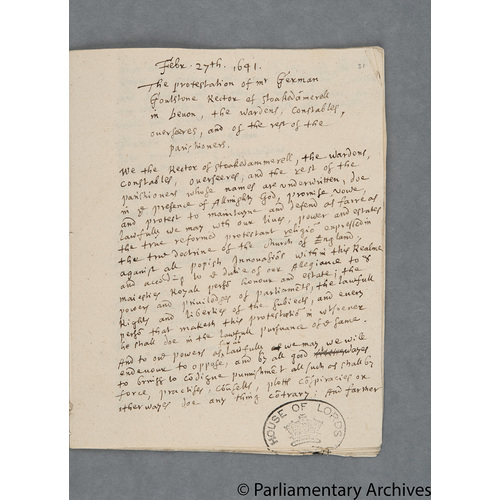 Febr. 27th. 1641.
31
The protestation of mr German
Gouldstone Rector of stoakedamerell
in Devon, the wardens, Constables,
overseeres, and of the rest of the
parishioners.
We the Rector of stoakedammerell, the wardens,
Constables, overseeres, and the rest of the
parishioners whose names are underwritten, doe
in ye presence of Almighty God, promise, vowe,
and protest to maintayne and defend as farre as
lawfully we may with our lives, power and estates
the true reformed protestant religiō expressed in
the true doctrine of the Church of England,
against all popish Innovatiōs within this Realme
and according to ye dutie of our Allegiance to ye
maiesties Royal persō honour and estate; the
powers and priviledges of parliaments, the lawfull
Rights and liberties of the subjects, and every
persō that maketh this protestatiō in whatsoever
he shall doe in the lawfull pursuance of ye same.
And to our powers as lawfully we may, we will
endevour to oppose, and by all good wayes
to bring to cōdigne punnishment all such as shall by
force, practises, Coūsells, plotts Cōspiracies or
otherwayes doe any thing cōtrary: And farther
HOUSE OF LORDS
© Parliamentary Archives